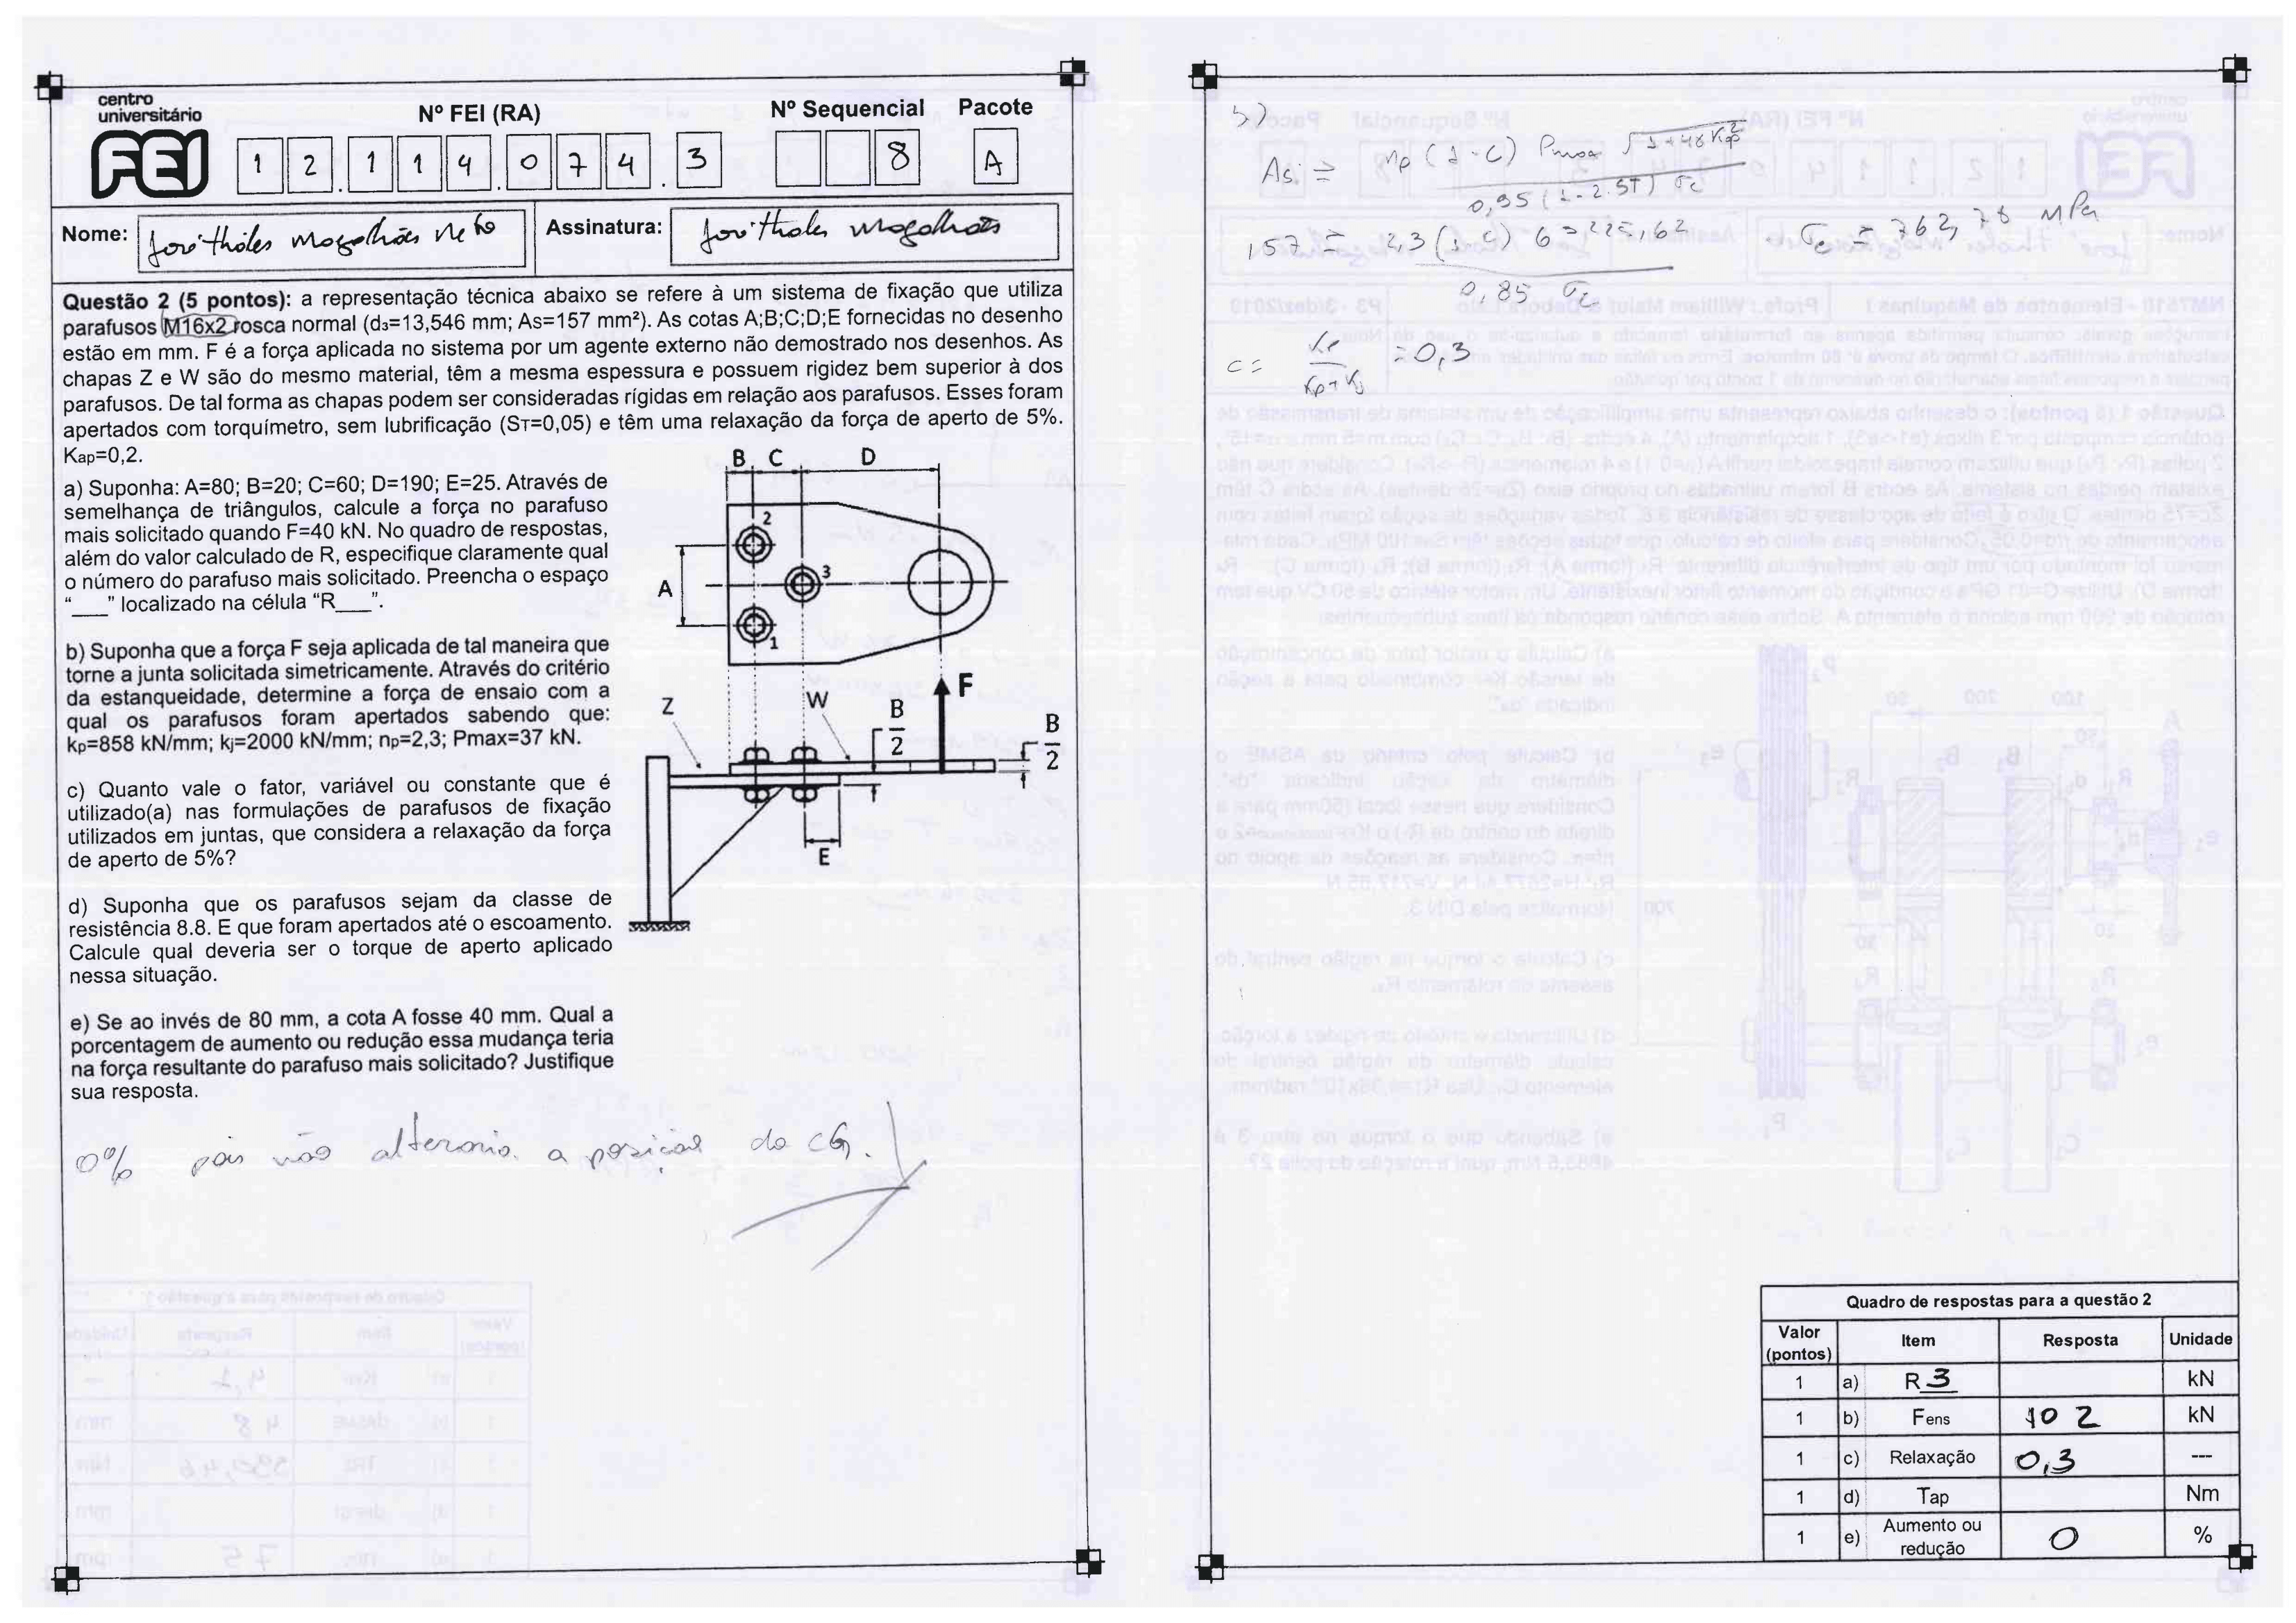 centro
universitário
FEI
Nº FEI (RA)
Nº Sequencial
Pacote
1 2 . 1 1 4 . 0 7 4 . 3
8
A
Nome:
Assinatura:
Questão 2 (5 pontos): a representação técnica abaixo se refere à um sistema de fixação que utiliza
parafusos M16x2 rosca normal (d₃=13,546 mm; As=157 mm²). As cotas A;B;C;D;E fornecidas no desenho
estão em mm. F é a força aplicada no sistema por um agente externo não demostrado nos desenhos. As
chapas Z e W são do mesmo material, têm a mesma espessura e possuem rigidez bem superior à dos
parafusos. De tal forma as chapas podem ser consideradas rígidas em relação aos parafusos. Esses foram
apertados com torquímetro, sem lubrificação (Sт=0,05) e têm uma relaxação da força de aperto de 5%.
Kap=0,2.
a) Suponha: A=80; B=20; C=60; D=190; E=25. Através de
semelhança de triângulos, calcule a força no parafuso
mais solicitado quando F=40 kN. No quadro de respostas,
além do valor calculado de R, especifique claramente qual
o número do parafuso mais solicitado. Preencha o espaço
"___" localizado na célula "R___".
b) Suponha que a força F seja aplicada de tal maneira que
torne a junta solicitada simetricamente. Através do critério
da estanqueidade, determine a força de ensaio com a
qual os parafusos foram apertados sabendo que:
kp=858 kN/mm; kj=2000 kN/mm; np=2,3; Pmax=37 kN.
c) Quanto vale o fator, variável ou constante que é
utilizado(a) nas formulações de parafusos de fixação
utilizados em juntas, que considera a relaxação da força
de aperto de 5%?
d) Suponha que os parafusos sejam da classe de
resistência 8.8. E que foram apertados até o escoamento.
Calcule qual deveria ser o torque de aperto aplicado
nessa situação.
e) Se ao invés de 80 mm, a cota A fosse 40 mm. Qual a
porcentagem de aumento ou redução essa mudança teria
na força resultante do parafuso mais solicitado? Justifique
sua resposta.
B C D
2
3
A
1
F
Z
W
B
2
B
2
E
0% pois não alteraria a posição do CG.
b)
= 762,78 MPa
0,85
= 0,3
Quadro de respostas para a questão 2
Valor
(pontos)
Item
Resposta
Unidade
1 a) R 3 kN
1 b) Fens 102 kN
1 c) Relaxação 0,3 ---
1 d) Tap Nm
1 e) Aumento ou
redução 0 %